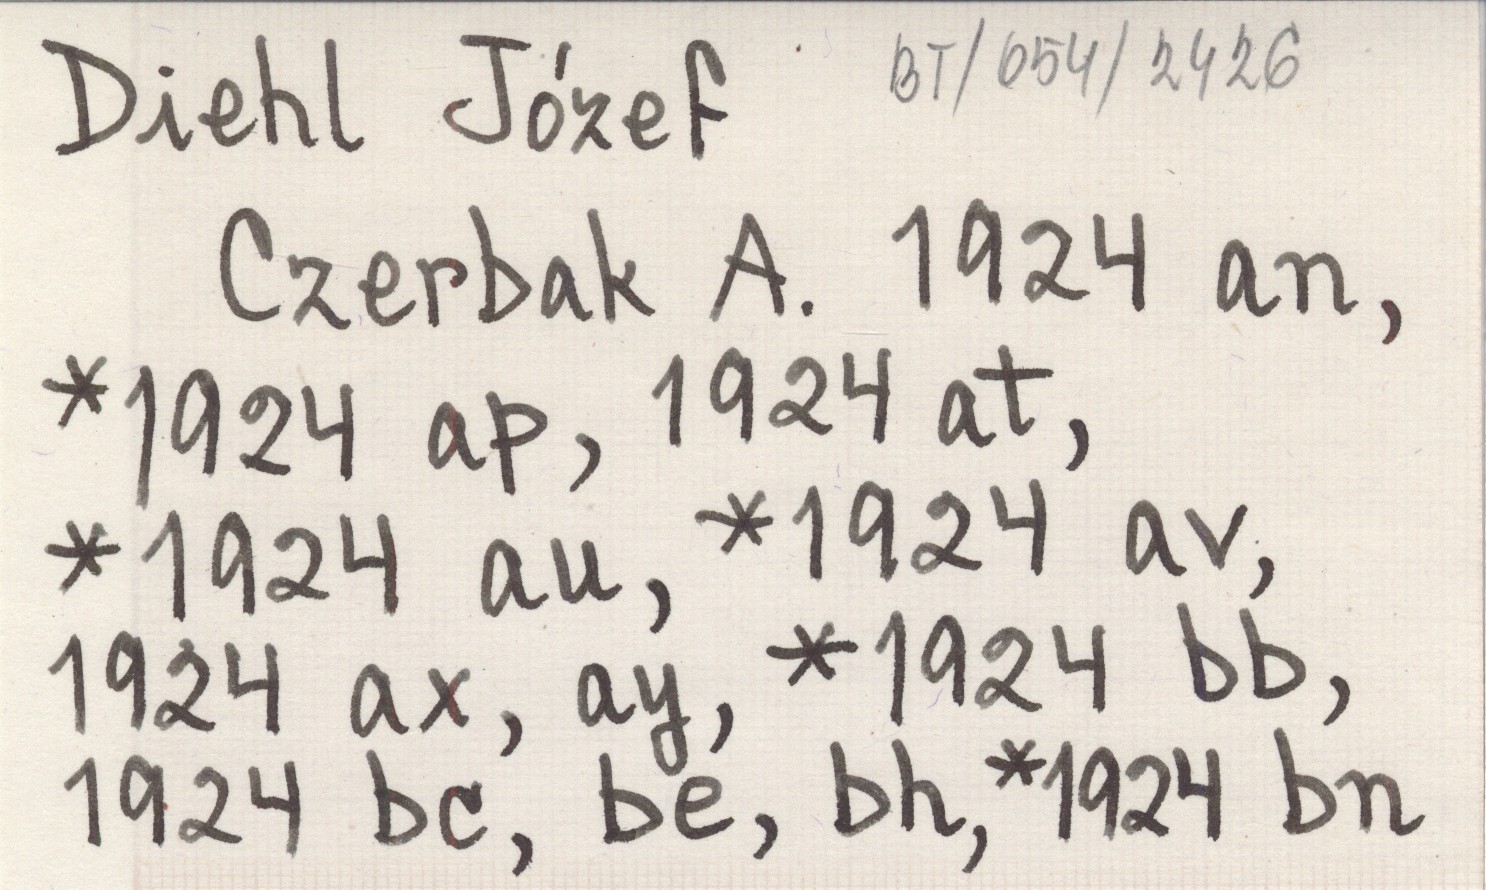 Diehl Józef BT/654/2426
Czerbak A. 1924 an,
*1924 ap, 1924 at,
*1924 au, *1924 av,
1924 ax, ay, *1924 bb,
1924 bc, be, bh, *1924 bn